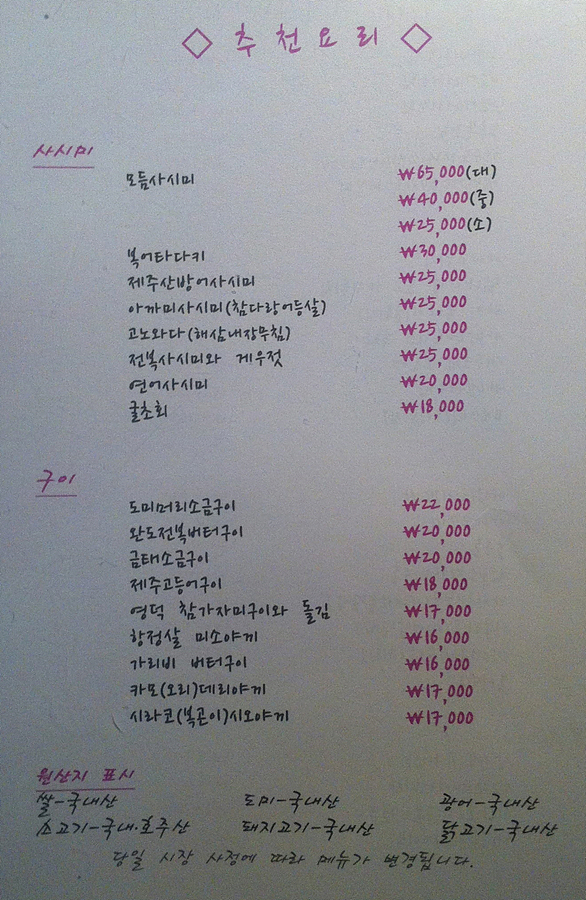 ◇ 추천요리 ◇
사시미
모듬사시미 ₩65,000(대)
₩40,000(중)
₩25,000(소)
복어타다키 ₩30,000
제주산방어사시미 ₩25,000
아까미사시미(참다랑어등살) ₩25,000
고노와다(해삼내장무침) ₩25,000
전복사시미와 게우젓 ₩25,000
연어사시미 ₩20,000
굴초회 ₩18,000
구이
도미머리소금구이 ₩22,000
완도전복버터구이 ₩20,000
금태소금구이 ₩20,000
제주고등어구이 ₩18,000
영덕 참가자미구이와 돌김 ₩17,000
항정살 미소야끼 ₩16,000
가리비 버터구이 ₩16,000
카모(오리)데리야끼 ₩17,000
시라코(복곤이)시오야끼 ₩17,000
원산지 표시
쌀-국내산 도미-국내산 광어-국내산
소고기-국내·호주산 돼지고기-국내산 닭고기-국내산
당일 시장 사정에 따라 메뉴가 변경됩니다.